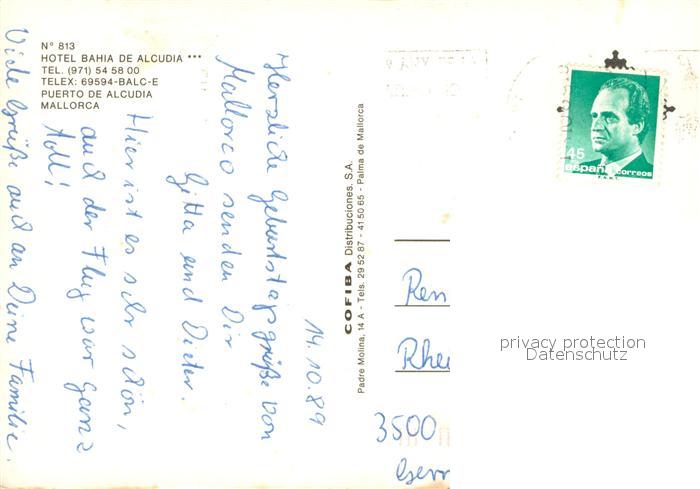 N° 813
HOTEL BAHIA DE ALCUDIA ***
TEL. (971) 54 58 00
TELEX: 69594-BALC-E
PUERTO DE ALCUDIA
MALLORCA
14.10.89
Herzliche Geburtstagsgrüße von
Mallorca senden Dir
Gitta und Dieter.
Hier ist es sehr schön,
auch der Flug war ganz
toll!
Viele Grüße auch an Deine Familie.
COFIBA Distribuciones, S.A.
Padre Molina, 14 A - Tels. 29 52 87 - 41 50 65 - Palma de Mallorca
45
españa correos
Ren
Rhei
3500
Germ
privacy protection
Datenschutz